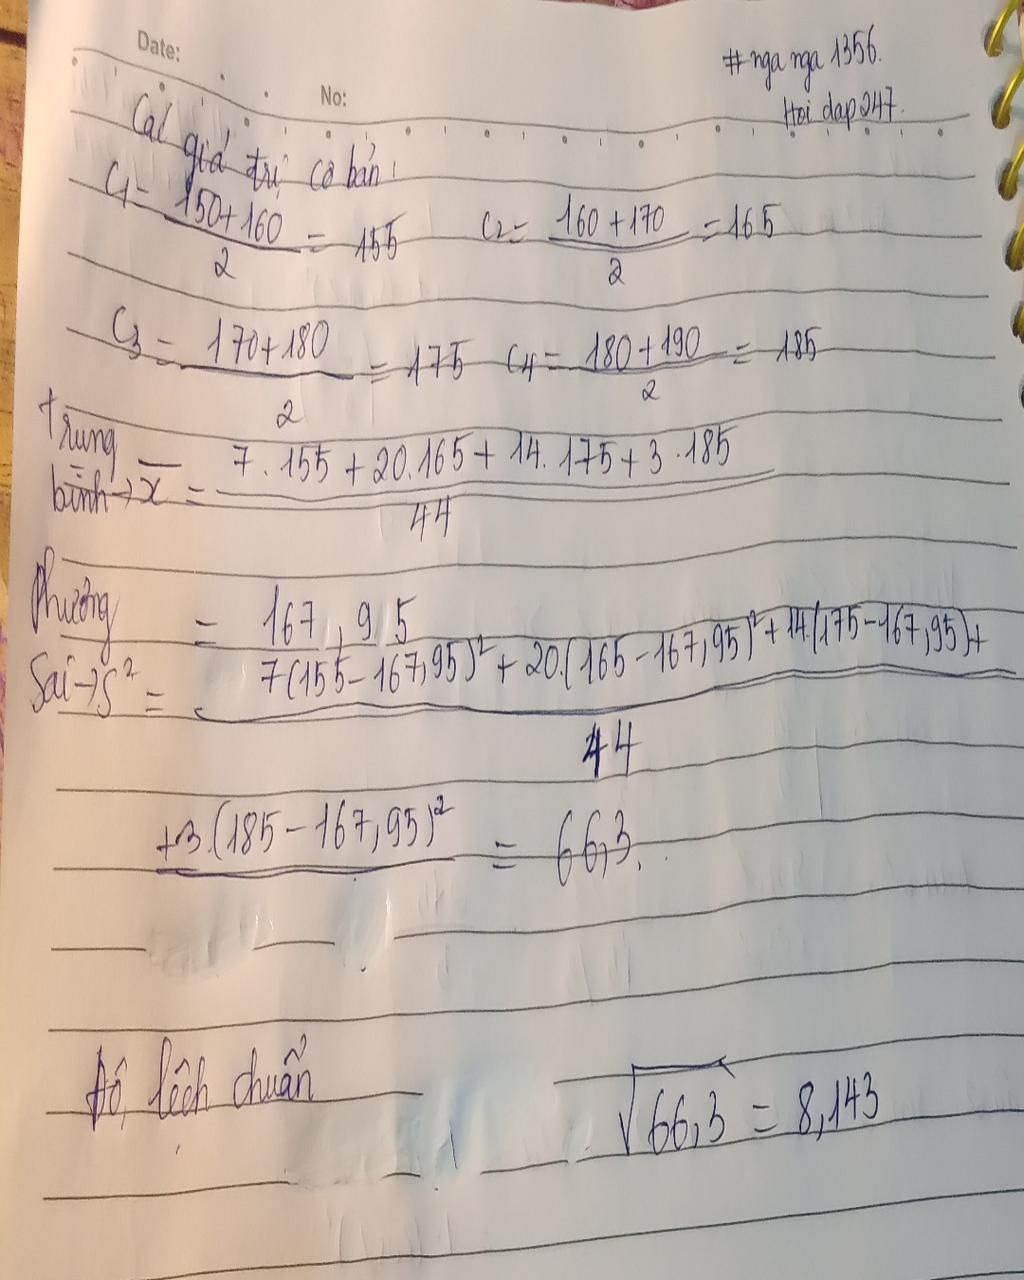 Date:
No:
#nga nga 1356.
Hoi dap 247.
Các giá trị cơ bản:
C1 = 150+160 / 2 = 155 C2 = 160+170 / 2 = 165
C3 = 170+180 / 2 = 175 C4 = 180+190 / 2 = 185
Trung bình → x̄ = 7.155 + 20.165 + 14.175 + 3.185 / 44
= 167,95
Phương sai → S² = 7(155-167,95)² + 20.(165-167,95)² + 14.(175-167,95)+ / 44
+3.(185-167,95)² = 66,3.
Độ lệch chuẩn √66,3 = 8,143